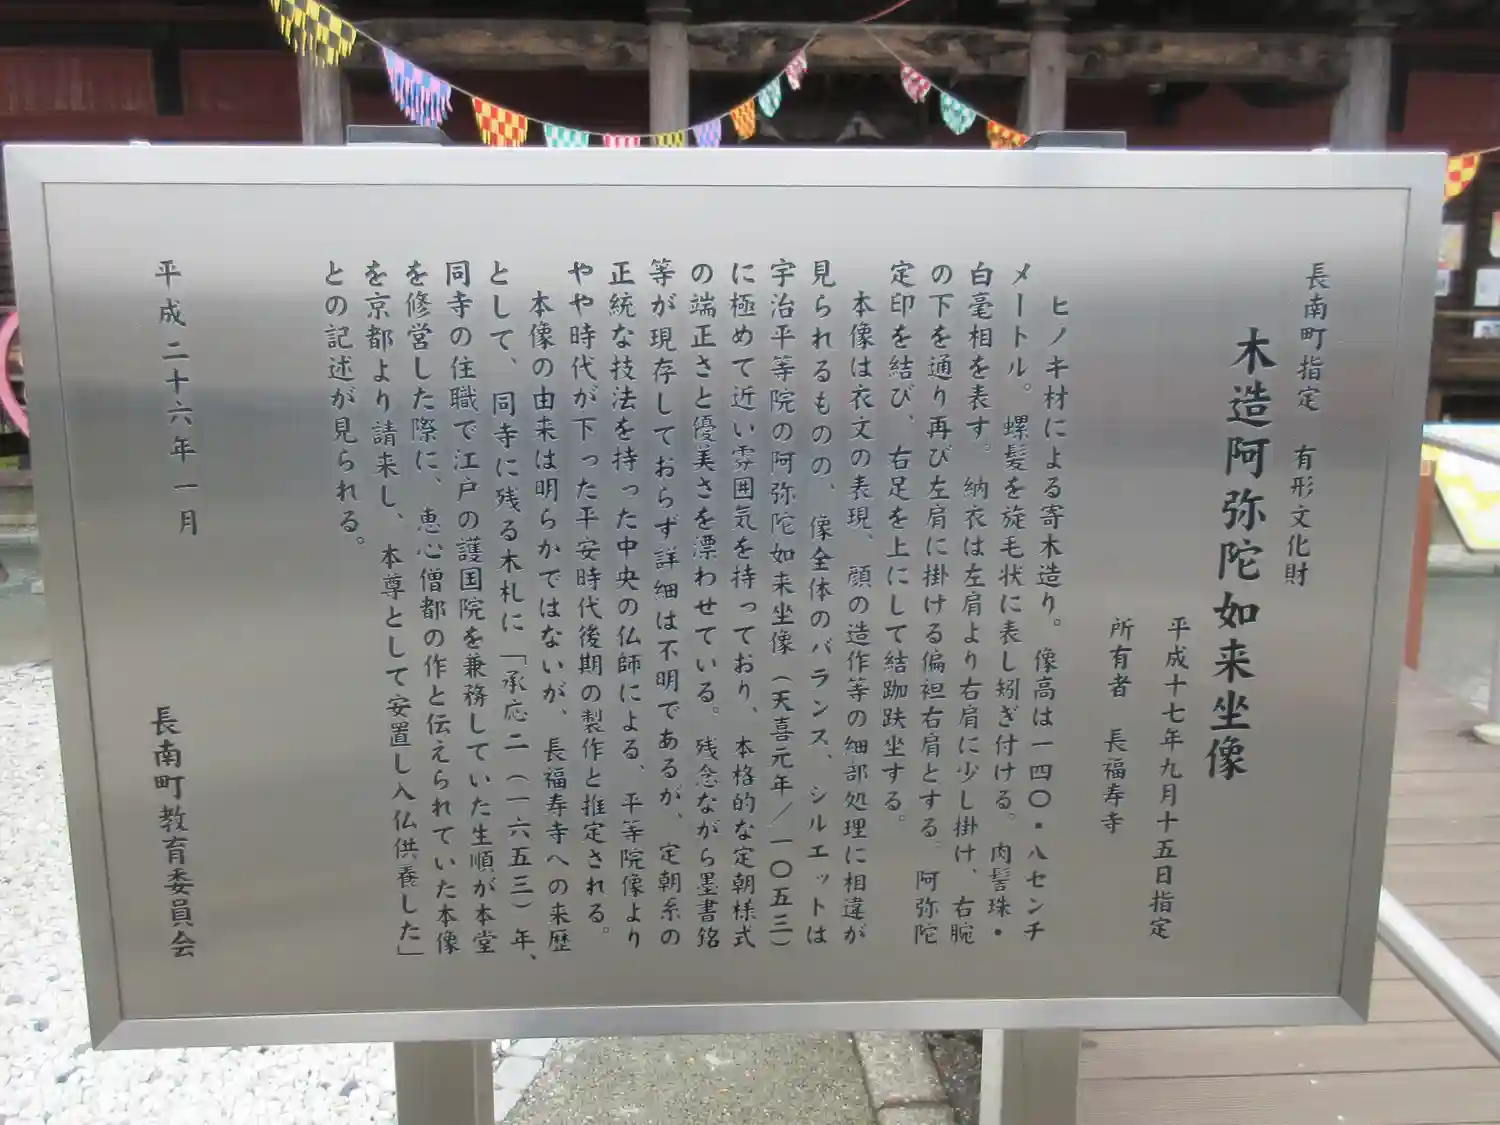 長南町指定　有形文化財
木造阿弥陀如来坐像
平成十七年九月十五日指定
所有者　長福寿寺
ヒノキ材による寄木造り。像高は一四〇・八センチ
メートル。螺髪を旋毛状に表し矧ぎ付ける。肉髻珠・
白毫相を表す。衲衣は左肩より右肩に少し掛け、右腕
の下を通り再び左肩に掛ける偏袒右肩とする。阿弥陀
定印を結び、右足を上にして結跏趺坐する。
本像は衣文の表現、顔の造作等の細部処理に相違が
見られるものの、像全体のバランス、シルエットは
宇治平等院の阿弥陀如来坐像（天喜元年／一〇五三）
に極めて近い雰囲気を持っており、本格的な定朝様式
の端正さと優美さを漂わせている。残念ながら墨書銘
等が現存しておらず詳細は不明であるが、定朝系の
正統な技法を持った中央の仏師による、平等院像より
やや時代が下った平安時代後期の製作と推定される。
本像の由来は明らかではないが、長福寿寺への来歴
として、同寺に残る木札に「承応二（一六五三）年、
同寺の住職で江戸の護国院を兼務していた生順が本堂
を修営した際に、恵心僧都の作と伝えられていた本像
を京都より請来し、本尊として安置し入仏供養した」
との記述が見られる。
平成二十六年一月
長南町教育委員会